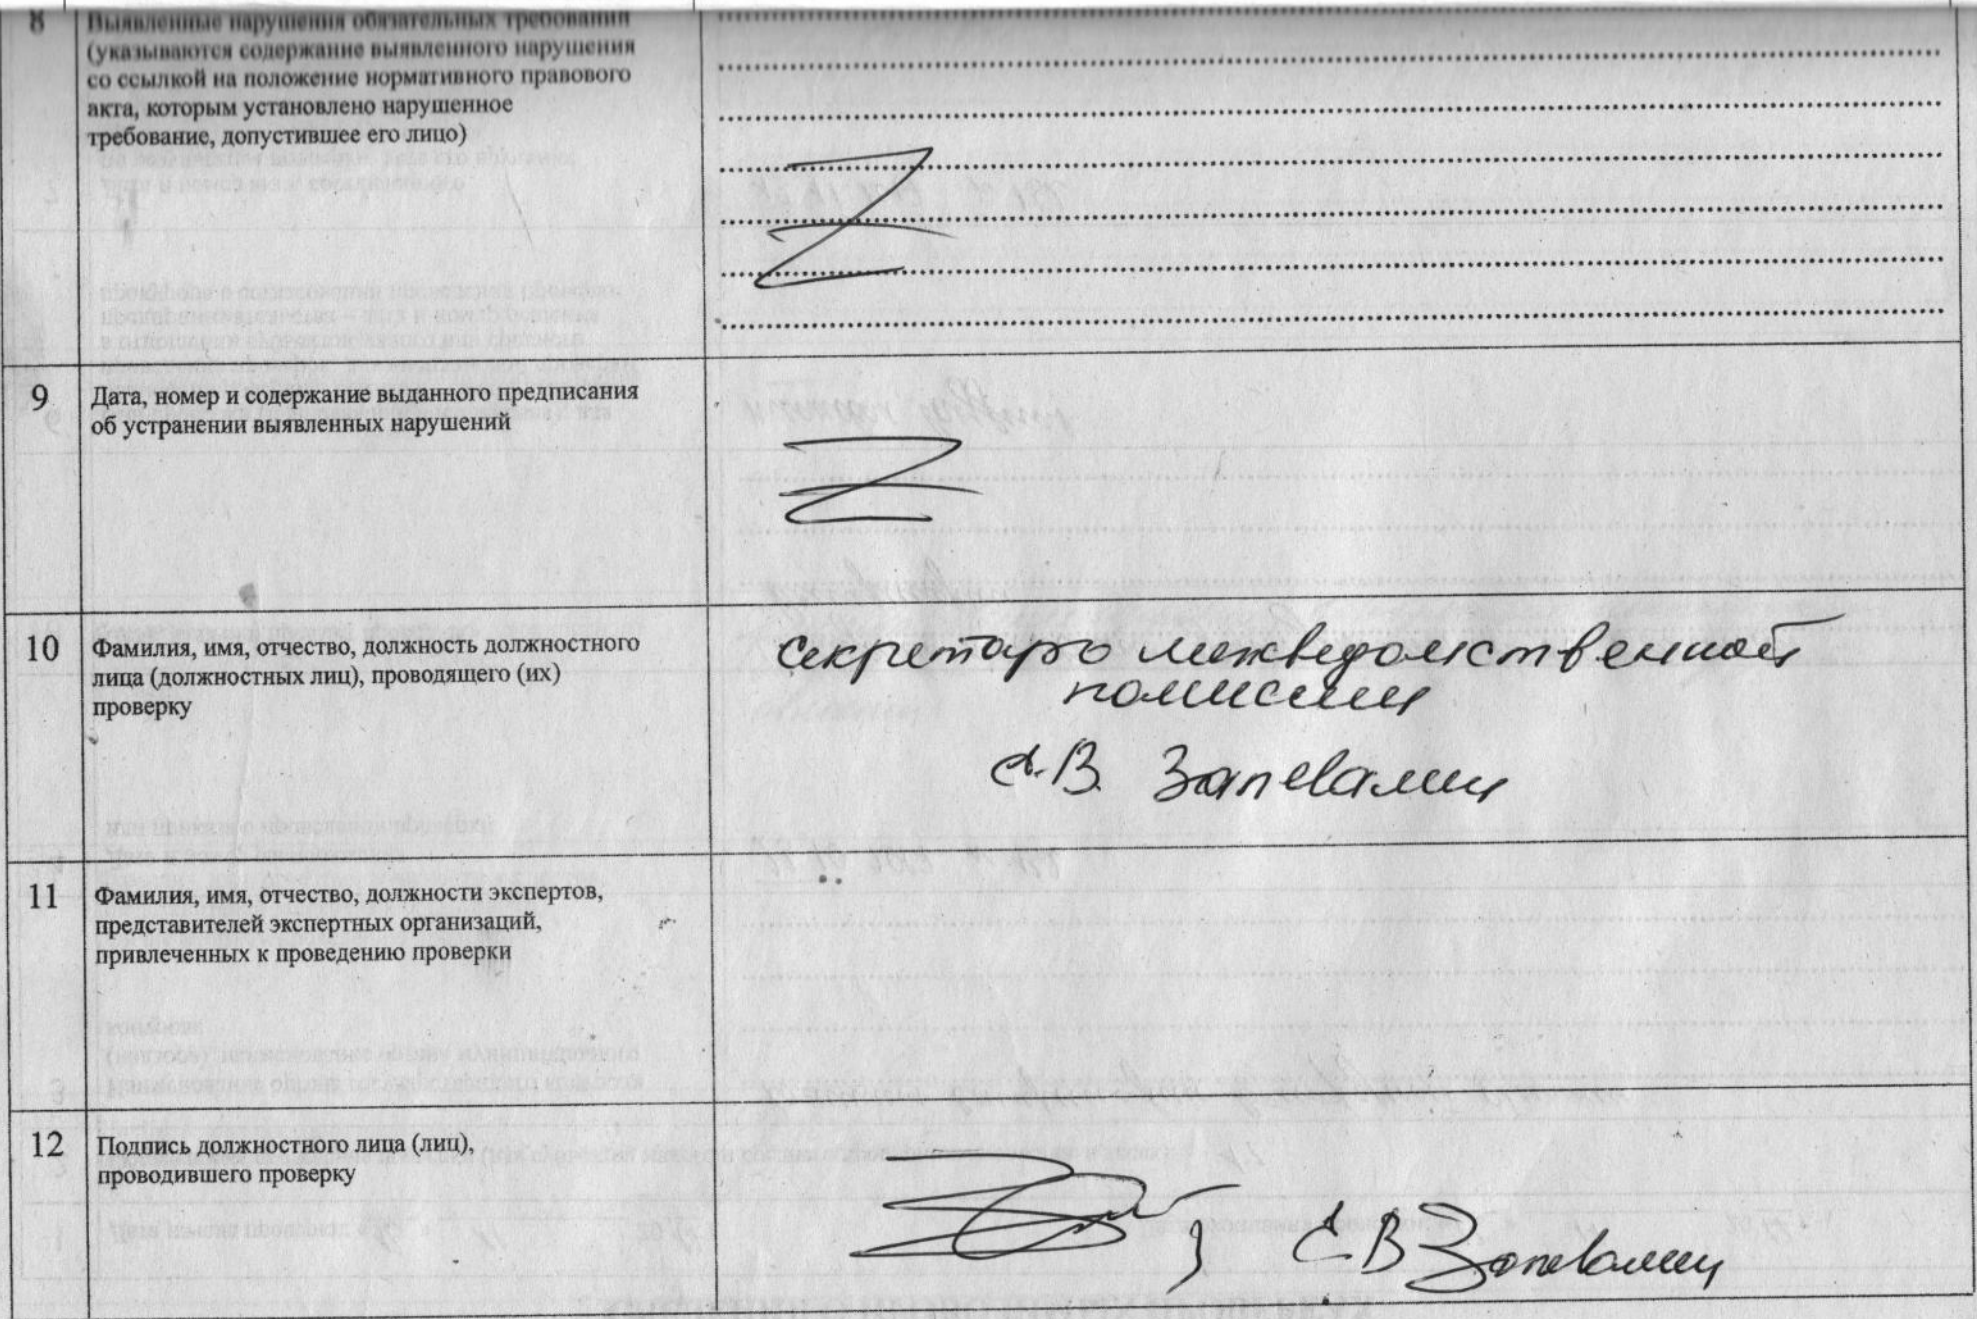 8 Выявленные нарушения обязательных требований
(указываются содержание выявленного нарушения
со ссылкой на положение нормативного правового
акта, которым установлено нарушенное
требование, допустившее его лицо)
9 Дата, номер и содержание выданного предписания
об устранении выявленных нарушений
10 Фамилия, имя, отчество, должность должностного
лица (должностных лиц), проводящего (их)
проверку
секретарь межведомственной
комиссии
В. Запевалин
11 Фамилия, имя, отчество, должности экспертов,
представителей экспертных организаций,
привлеченных к проведению проверки
12 Подпись должностного лица (лиц),
проводившего проверку
В Запевалин